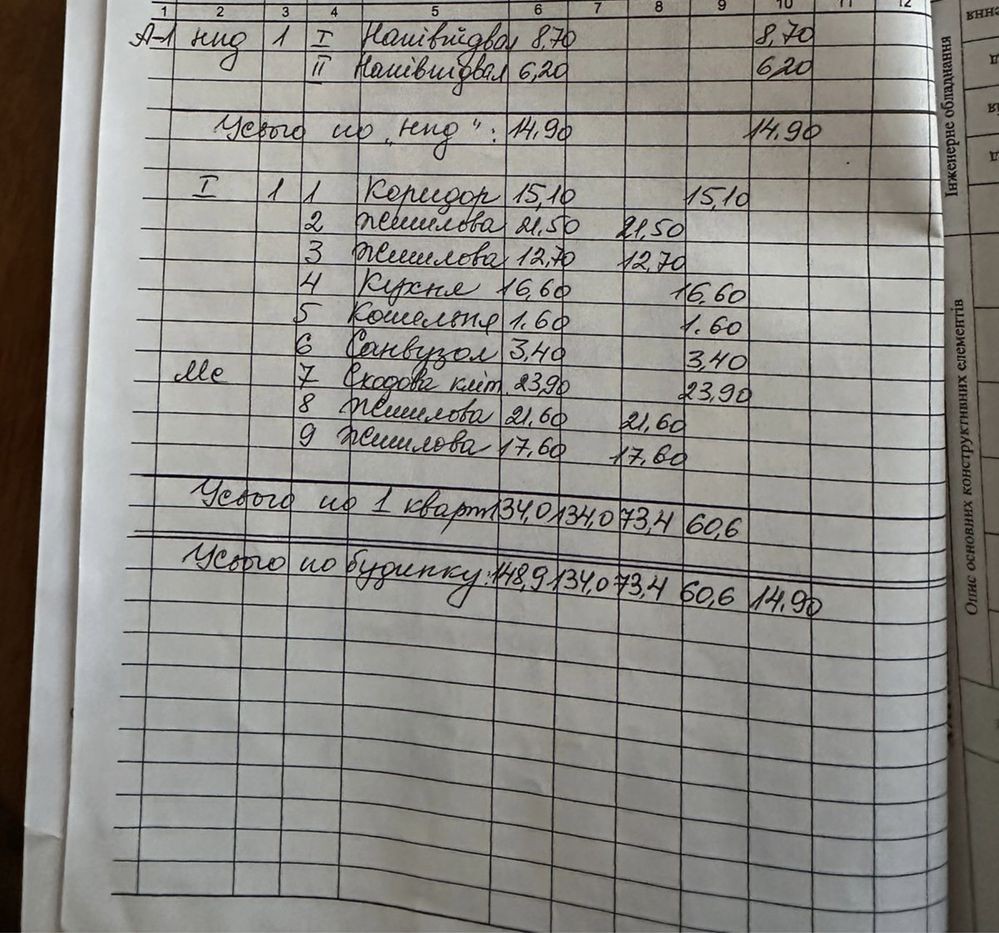 1 2 3 4 5 6 7 8 9 10 11 12
А-1 нпд 1 I Напівпідвал 8,70 8,70
II Напівпідвал 6,20 6,20
Усього по „нпд“: 14.90 14.90
I 1 1 Коридор 15,10 15,10
2 Житлова 21,50 21,50
3 Житлова 12,70 12,70
4 Кухня 16,60 16.60
5 Котельня 1.60 1.60
6 Санвузол 3,40 3,40
Ме 7 Сходова кліт. 23,90 23,90
8 Житлова 21,60 21,60
9 Житлова 17,60 17,60
Усього по 1 кварт. 134,0 134,0 73,4 60,6
Усього по будинку: 148,9 134,0 73,4 60,6 14.90
Інженерне обладнання
Опис основних конструктивних елементів